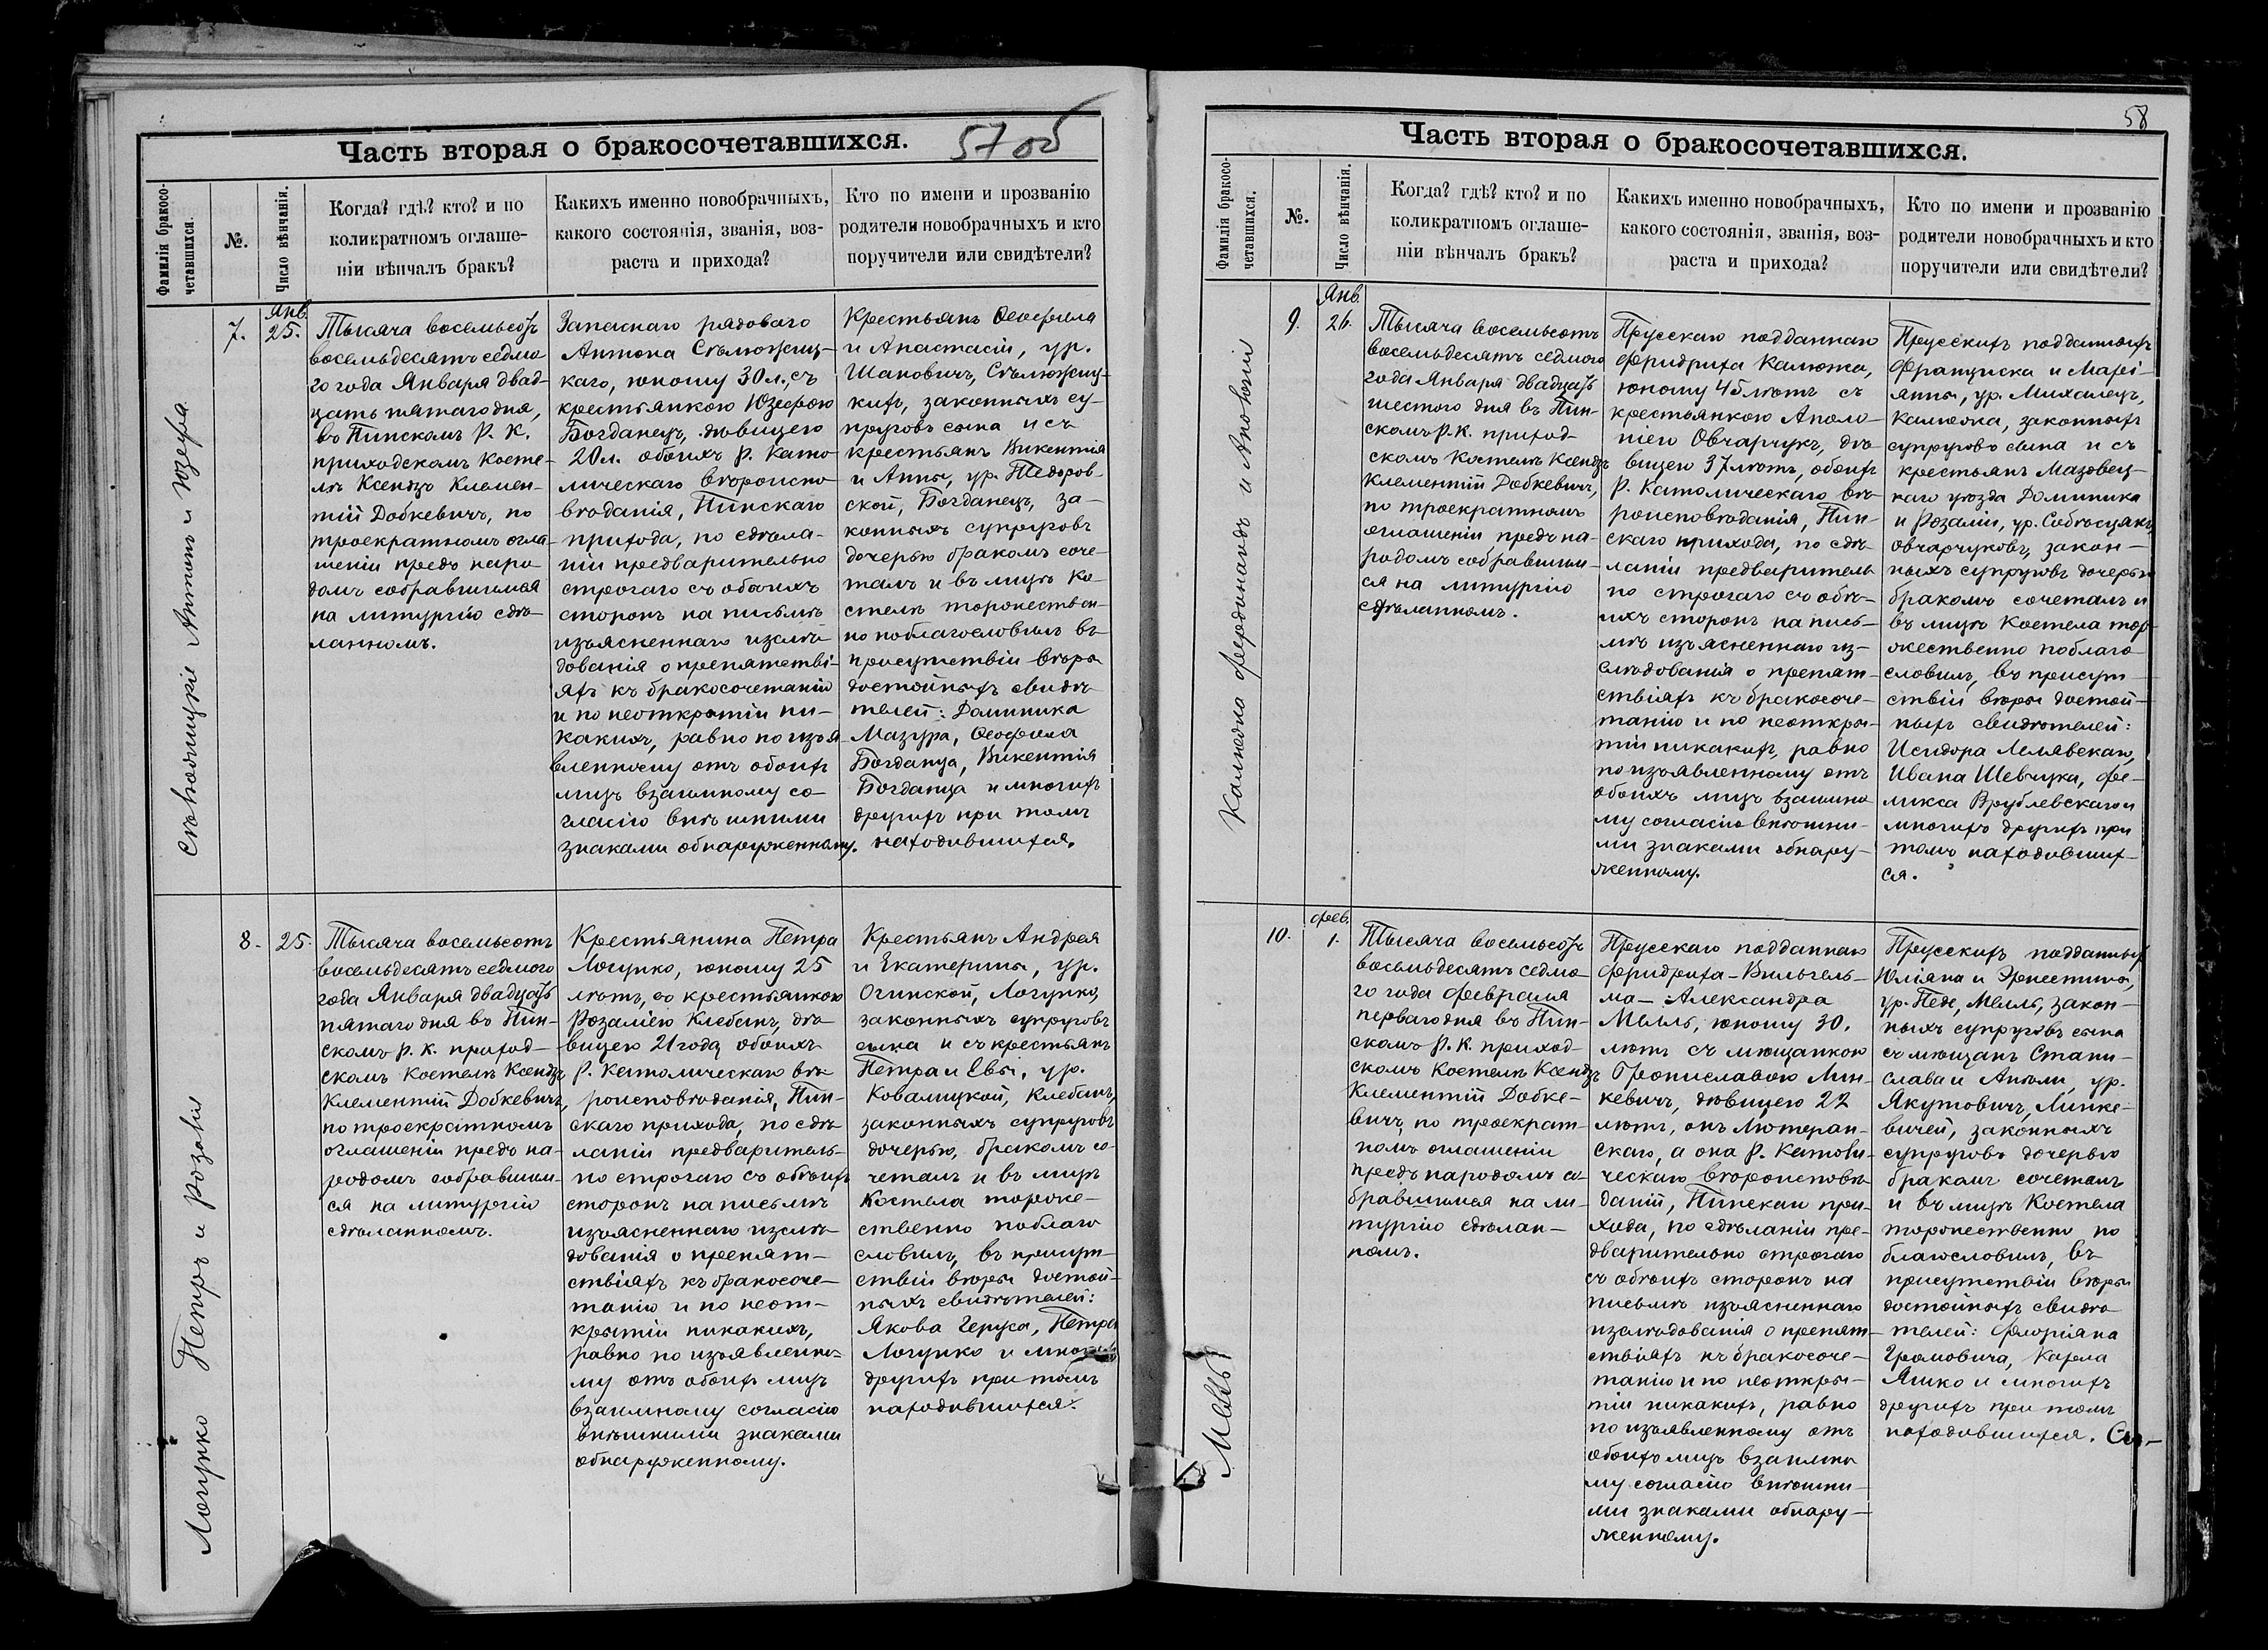 Часть вторая о бракосочетавшихся.
57 об
Фамилія бракосо-
четавшихся.
№.
Число вѣнчанія.
Когда? гдѣ? кто? и по
коликратномъ оглаше-
ніи вѣнчалъ бракъ?
Какихъ именно новобрачныхъ,
какого состоянія, званія, воз-
раста и прихода?
Кто по имени и прозванію
родители новобрачныхъ и кто
поручители или свидѣтели?
Антонъ и Юзефа
7.
Янв.
25.
Тысяча восемьсотъ
восемьдесятъ седмо
го года Января двад-
цать пятаго дня,
въ Пинскомъ Р. К.
приходскомъ Косте-
лѣ Ксендзъ Клемен-
тій Добкевичъ, по
троекратномъ огла-
шеніи предъ наро-
домъ собравшимся
на литургію сдѣ-
ланномъ.
Запаснаго рядоваго
Антона
каго, юношу 30 л., съ
крестьянкою Юзефою
Богданецъ, дѣвицею
20 л. обоихъ Р. Като
лическаго вѣроиспо
вѣданія, Пинскаго
прихода, по сдѣла-
ніи предварительно
строгаго съ обоихъ
сторонъ на письмѣ
изъясненнаго изслѣ-
дованія о препятстві-
яхъ къ бракосочетанію
и по неоткрытіи ни-
какихъ, равно по изъя-
вленному отъ обоихъ
лицъ взаимному со-
гласію внѣшними
знаками обнаруженному.
Крестьянъ Ѳеофила
и Анастасіи, ур.
Шановичъ,
кихъ, законныхъ су-
пруговъ сына и съ
крестьянъ Викентія
и Анны, ур. Тѣдоров-
ской, Богданецъ, за-
конныхъ супруговъ
дочерью бракомъ соче-
талъ и въ лицѣ Ко-
стела торжествен-
но поблагословилъ въ
присутствіи вѣры
достойныхъ свидѣ-
телей: Доминика
Мазура, Ѳеофила
Богданца, Викентія
Богданца и многихъ
другихъ при томъ
находившихся.
Логушко Петръ и Розалія
8.
25.
Тысяча восемьсотъ
восемьдесятъ седмого
года Января двадцать
пятаго дня въ Пин-
скомъ Р. К. приход-
скомъ Костелѣ Ксендзъ
Клементій Добкевичъ,
по троекратномъ
оглашеніи предъ на-
родомъ собравшим-
ся на литургію
сдѣланномъ.
Крестьянина Петра
Логушко, юношу 25
лѣтъ, со крестьянкою
Розаліею Клебанъ, дѣ-
вицею 21 года, обоихъ
Р. Католическаго вѣ-
роисповѣданія, Пин-
скаго прихода, по сдѣ-
ланіи предваритель-
но строгаго съ обоихъ
сторонъ на письмѣ
изъясненнаго изслѣ-
дованія о препят-
ствіяхъ къ бракосоче-
танію и по неот-
крытіи никакихъ,
равно по изъявленно-
му отъ обоихъ лицъ
взаимному согласію
внѣшними знаками
обнаруженному.
Крестьянъ Андрея
и Екатерины, ур.
Огинской, Логушко,
законныхъ супруговъ
сына и съ крестьянъ
Петра и Евы, ур.
Ковалицкой, Клебанъ,
законныхъ супруговъ
дочерью, бракомъ со-
четалъ и въ лицѣ
Костела торже-
ственно поблаго
словилъ, въ присут-
ствіи вѣры достой-
ныхъ свидѣтелей:
Якова Геруса, Петра
Логушко и многихъ
другихъ при томъ
находившихся.
58
Часть вторая о бракосочетавшихся.
Фамилія бракосо-
четавшихся.
№.
Число вѣнчанія.
Когда? гдѣ? кто? и по
коликратномъ оглаше-
ніи вѣнчалъ бракъ?
Какихъ именно новобрачныхъ,
какого состоянія, званія, воз-
раста и прихода?
Кто по имени и прозванію
родители новобрачныхъ и кто
поручители или свидѣтели?
Фердинандъ и Аполонія
9.
Янв.
26.
Тысяча восемьсотъ
восемьдесятъ седмого
года Января двадцать
шестого дня въ Пин-
скомъ Р. К. приход-
скомъ Костелѣ Ксендзъ
Клементій Добкевичъ,
по троекратномъ
оглашеніи предъ на-
родомъ собравшим-
ся на литургію
сдѣланномъ.
Прусскаго подданнаго
Фридриха
юношу 45 лѣтъ съ
крестьянкою Аполо-
ніею Овчарчукъ, дѣ-
вицею 37 лѣтъ, обоихъ
Р. Католическаго вѣ-
роисповѣданія, Пин-
скаго прихода, по сдѣ-
ланіи предваритель
но строгаго съ обо-
ихъ сторонъ на пись-
мѣ изъясненнаго из-
слѣдованія о препят-
ствіяхъ къ бракосоче-
танію и по неоткры-
тіи никакихъ, равно
по изъявленному отъ
обоихъ лицъ взаимно
му согласію внѣшни-
ми знаками обнару-
женному.
Прусскихъ подданныхъ
Франциска и Марі-
анны, ур. Михалецъ,
законныхъ
супруговъ сына и съ
крестьянъ Мазовец-
каго уѣзда Доминика
и Розаліи, ур.
Овчарчуковъ, закон-
ныхъ супруговъ дочерью
бракомъ сочеталъ и
въ лицѣ Костела тор-
жественно поблаго-
словилъ, въ присут-
ствіи вѣры достой-
ныхъ свидѣтелей:
Исидора Лемявскаго,
Ивана Шевчука, Фе-
ликса Врублевскаго и
многихъ другихъ при
томъ находивших-
ся.
Мелль
10.
Фев.
1.
Тысяча восемьсотъ
восемьдесятъ седмо-
го года Февраля
перваго дня въ Пин-
скомъ Р. К. приход-
скомъ Костелѣ Ксендзъ
Клементій Добке-
вичъ, по троекрат-
номъ оглашеніи
предъ народомъ со-
бравшимся на ли-
тургію сдѣлан-
номъ.
Прусскаго подданнаго
Фридриха-Вильгель-
ма-Александра
Мелль, юношу 30.
лѣтъ съ мѣщанкою
Брониславою Лин-
кевичъ, дѣвицею 22
лѣтъ, онъ Лютеран-
скаго, а она Р. Католи-
ческаго вѣроисповѣ-
даній, Пинскаго при-
хода, по сдѣланіи пре-
дварительно строгаго
съ обоихъ сторонъ на
письмѣ изъясненнаго
изслѣдованія о препят-
ствіяхъ къ бракосоче-
танію и по неоткры-
тіи никакихъ, равно
по изъявленному отъ
обоихъ лицъ взаимно
му согласію внѣшни-
ми знаками обнару-
женному.
Прусскихъ подданныхъ
Юліяна и Эрнестины,
ур. Теде, Мелль, закон-
ныхъ супруговъ сына
съ мѣщанъ Стани-
слава и Анѣли, ур.
Якутовичъ, Линке-
вичей, законныхъ
супруговъ дочерью
бракомъ сочеталъ
и въ лицѣ Костела
торжественно по
благословилъ, въ
присутствіи вѣры
достойныхъ свидѣ-
телей: Флоріяна
Громовича, Карла
Яшко и многихъ
другихъ при томъ
находившихся.